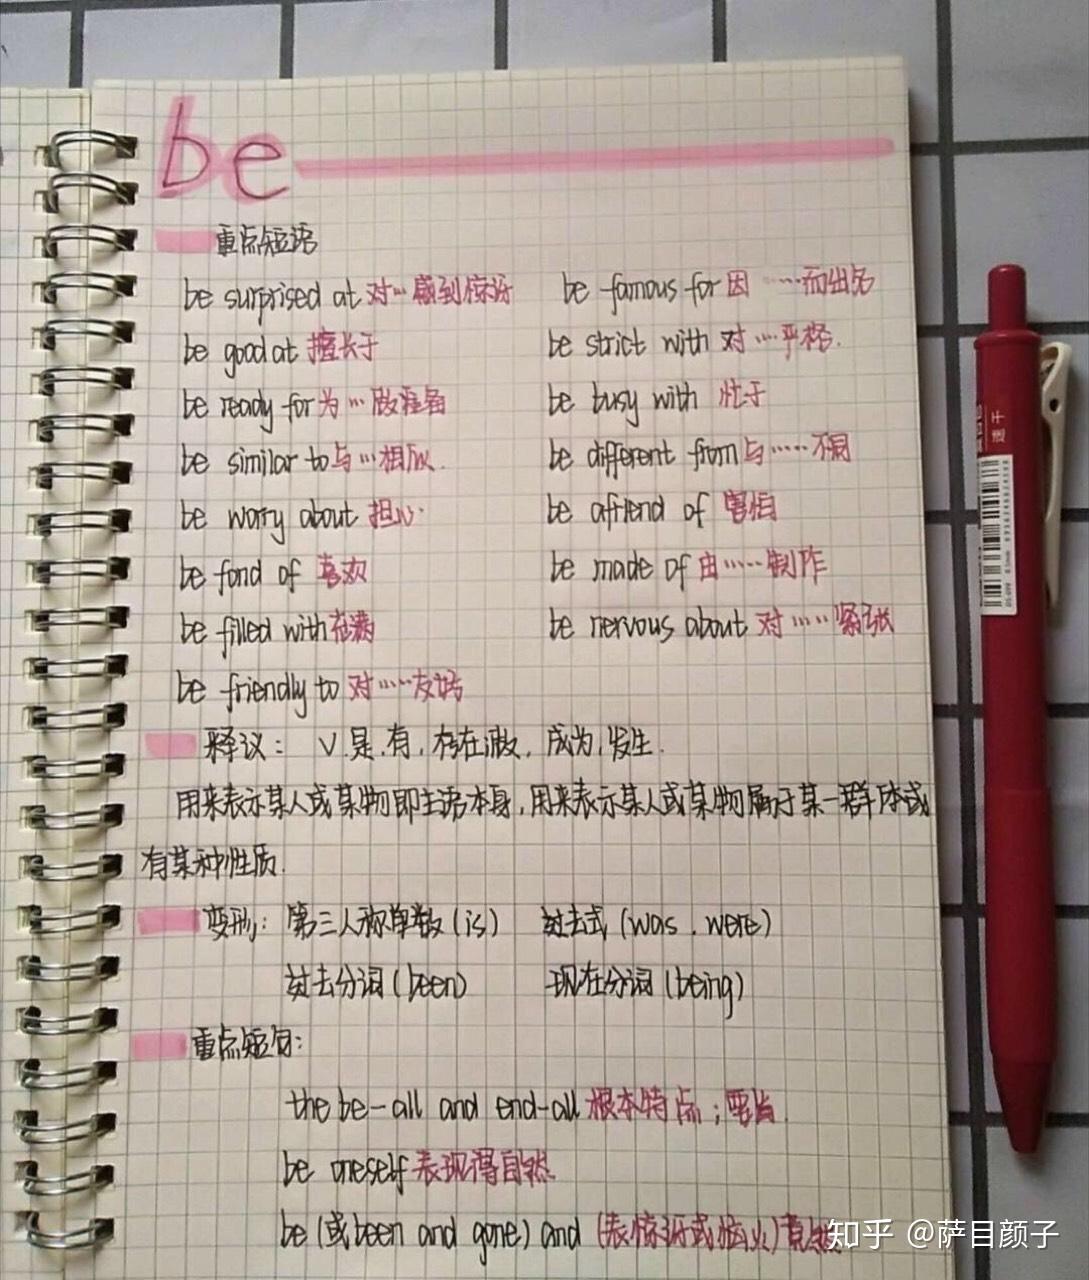 be
重点短语
be surprised at 对…感到惊讶 be famous for 因 ……而出名
be good at 擅长于 be strict with 对……严格.
be ready for 为…做准备 be busy with 忙于
be similar to 与…相似. be different from 与……不同
be worry about 担心. be afriend of 害怕
be fond of 喜欢 be made of 由……制作
be filled with 充满 be nervous about 对……紧张
be friendly to 对……友好
释议: V.是.有,存在,做, 成为,发生.
用来表示某人或某物即主语本身,用来表示某人或某物属于某一群体或
有某种性质.
变形: 第三人称单数(is) 过去式(was.were)
过去分词(been) 现在分词(being)
重点短句:
the be-all and end-all 根本特点;要旨.
be oneself 表现得自然
be (或been and gone) and (表惊讶或恼火)竟然
知乎 @萨目颜子
适干
0.5mm